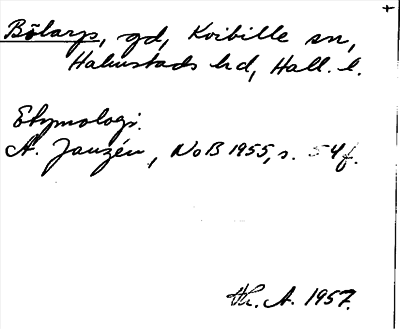 Bölarp, gd, Kvibille sn,
Halmstads hd, Hall. l.
Etymologi.
A. Janzén, NoB 1955, s. 54 f.
Th. A. 1957.